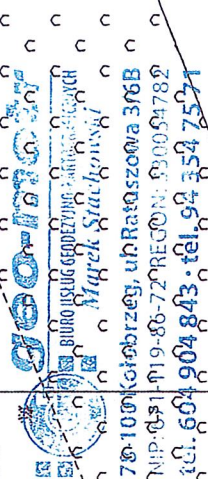 geo-mar
BIURO USŁUG GEODEZYJNO-KARTOGRAFICZNYCH
Marek Stachowski
78-100 Kołobrzeg, ul. Ratuszowa 3/6B
NIP: 671-119-86-72 REGON: 330054782
tel. 604 904 843 • tel. 94 354 75 71